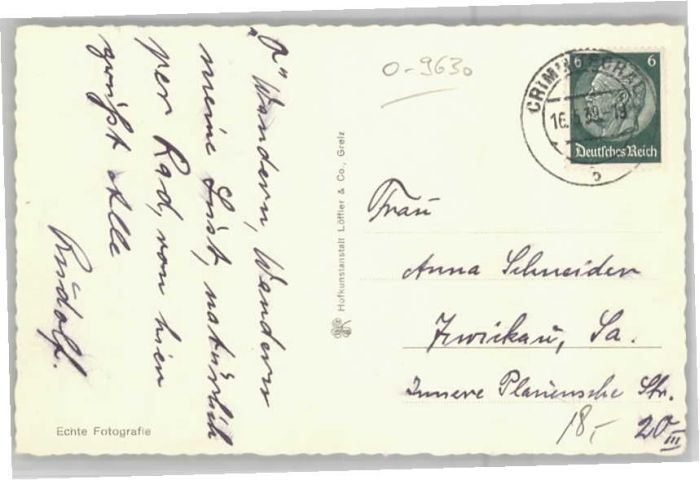 O-9630
6 6
CRIMMITSCHAU
16.5.39.-19
b
Deutsches Reich
"O" Wandern, Wandern
meine Lust, natürlich
per Rad, von hier
grüßt Alle
Rudolf.
Hofkunstanstalt Löffler & Co., Greiz
Frau
Anna Schneider
Zwickau, Sa.
Innere Plauensche Str.
20 III
18,-
Echte Fotografie